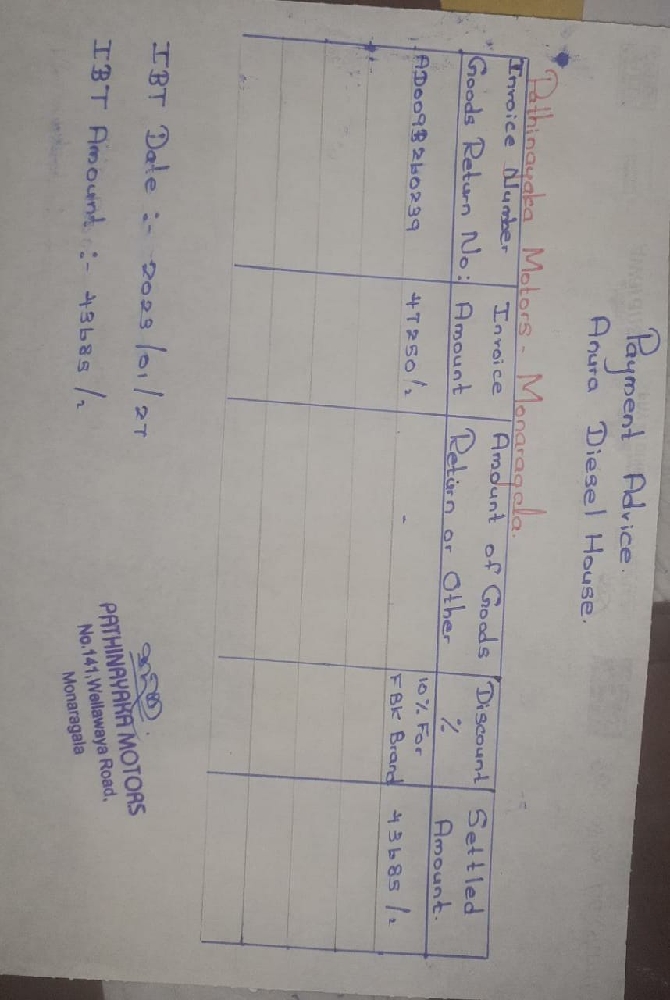 Payment Advice.
Anura Diesel House.
Pathinayaka Motors - Monaragala.
Invoice Number Invoice Amount of Goods Discount Settled
Goods Return No: Amount Return or Other % Amount.
47250/2 - 10% For FBK Brand 43685/2
IBT Date :- 2023/01/27
IBT Amount :- 43685/2
PATHINAYAKA MOTORS
No.141, Wellawaya Road,
Monaragala